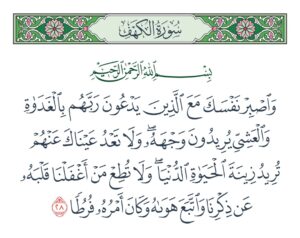 سُورَةُ الكَهْفِ
بِسْمِ اللَّهِ الرَّحْمَٰنِ الرَّحِيمِ
وَاصْبِرْ نَفْسَكَ مَعَ الَّذِينَ يَدْعُونَ رَبَّهُم بِالْغَدَوٰةِ
وَالْعَشِيِّ يُرِيدُونَ وَجْهَهُۥۖ وَلَا تَعْدُ عَيْنَاكَ عَنْهُمْ
تُرِيدُ زِينَةَ الْحَيَوٰةِ الدُّنْيَاۖ وَلَا تُطِعْ مَنْ أَغْفَلْنَا قَلْبَهُۥ
عَن ذِكْرِنَا وَاتَّبَعَ هَوَىٰهُ وَكَانَ أَمْرُهُۥ فُرُطًا ٢٨